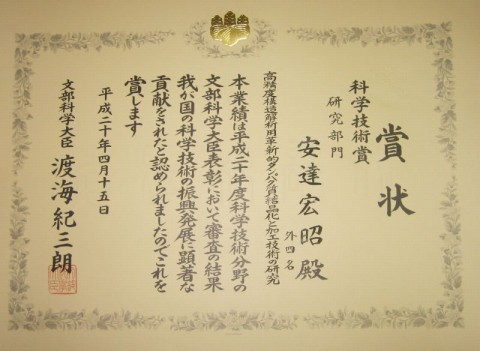 賞状
科学技術賞
研究部門
安達宏昭殿
外四名
高精度構造解析用革新的タンパク質結晶化と加工技術の研究
本業績は平成二十年度科学技術分野の
文部科学大臣表彰において審査の結果
我が国の科学技術の振興発展に顕著な
貢献をされたと認められましたのでこれを
賞します
平成二十年四月十五日
文部科学大臣 渡海紀三朗